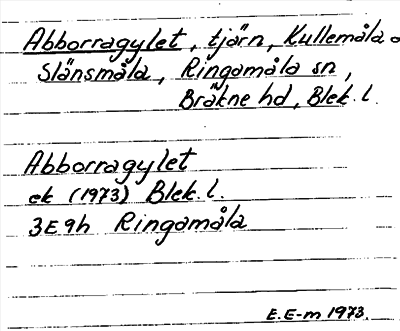 Abborragylet, tjärn, Kullemåla o
Slänsmåla, Ringamåla sn,
Bräkne hd, Blek. l.
Abborragylet
ek (1973) Blek. l.
3E9h Ringamåla
E.E-m 1973.